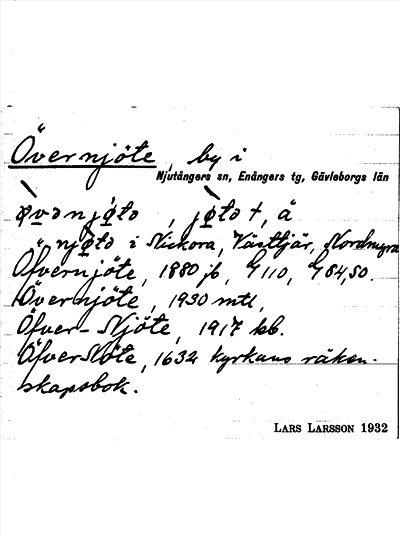 Övernjöte, by i
Njutångers sn, Enångers tg, Gävleborgs län
øvənjø̀tə, jøtə t, ä
" njøtə i Niskora, Västtjär, Nordmyra
Öfvernjöte, 1880 jb, G110, G84,50.
Övernjöte, 1930 mtl,
Öfver-Njöte, 1917 kb.
Öfver Nöte, 1632 kyrkans räken-
skapsbok.
LARS LARSSON 1932